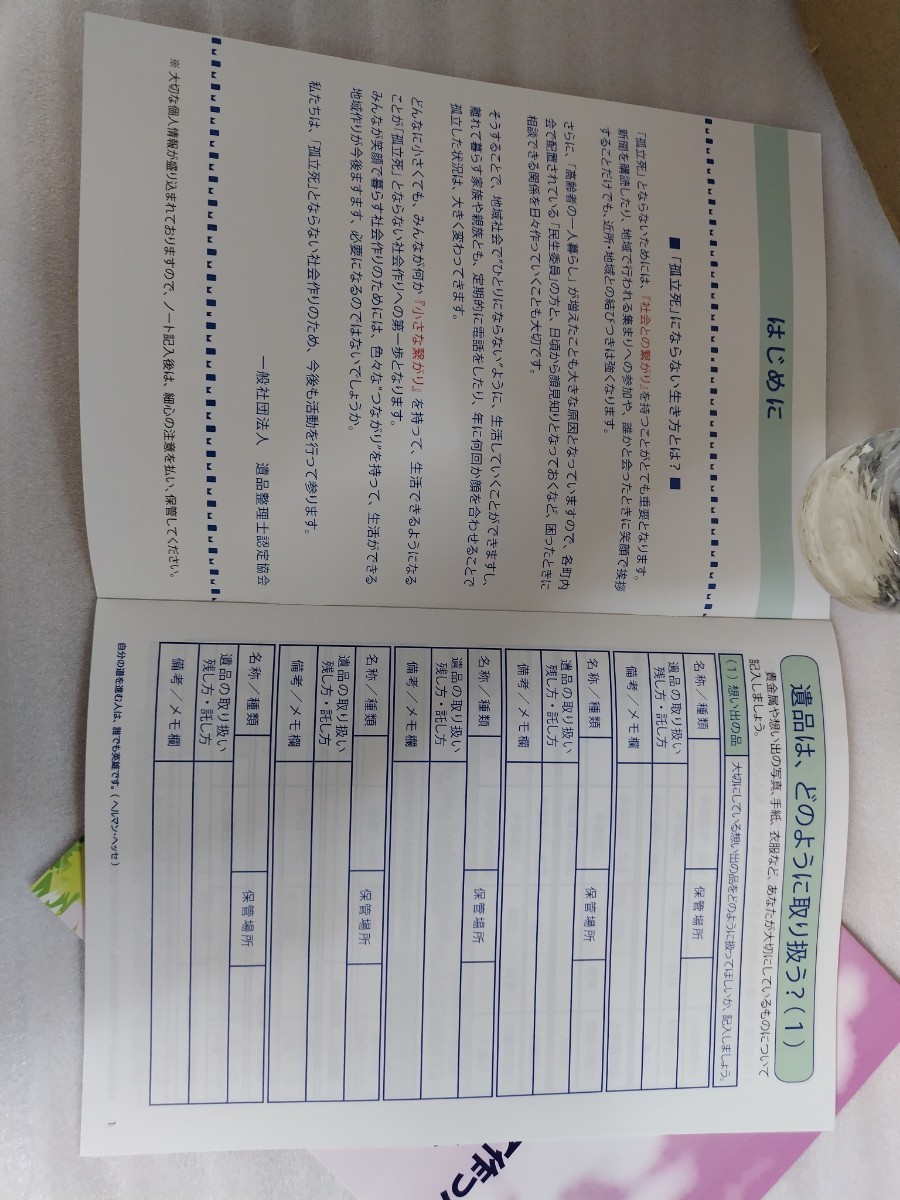 はじめに
■「孤立死」にならない生き方とは？■
「孤立死」とならないためには、『社会との繋がり』を持つことがとても重要となります。
新聞を購読したり、地域で行われる集まりへの参加や、誰かと会ったときに笑顔で挨拶
することだけでも、近所・地域との結びつきは強くなります。
さらに、「高齢者の一人暮らし」が増えたことも大きな原因となっていますので、各町内
会で配置されている「民生委員」の方と、日頃から顔見知りとなっておくなど、困ったときに
相談できる関係を日々作っていくことも大切です。
そうすることで、地域社会で“ひとりにならない”ように、生活していくことができますし、
離れて暮らす家族や親族とも、定期的に電話をしたり、年に何回か顔を合わせることで
孤立した状況は、大きく変わってきます。
どんなに小さくても、みんなが何か『小さな繋がり』を持って、生活できるようになる
ことが「孤立死」とならない社会作りへの第一歩となります。
みんなが笑顔で暮らす社会作りのためには、色々な“つながり”を持って、生活ができる
地域作りが今後ますます、必要になるのではないでしょうか。
私たちは、「孤立死」とならない社会作りのため、今後も活動を行って参ります。
一般社団法人　遺品整理士認定協会
※ 大切な個人情報が盛り込まれておりますので、ノート記入後は、細心の注意を払い、保管してください。
遺品は、どのように取り扱う？(1)
貴金属や想い出の写真、手紙、衣服など、あなたが大切にしているものについて
記入しましょう。
(1) 想い出の品　大切にしている想い出の品をどのように扱ってほしいか、記入しましょう。
名称／種類　保管場所
遺品の取り扱い
残し方・託し方
備考／メモ欄
名称／種類　保管場所
遺品の取り扱い
残し方・託し方
備考／メモ欄
名称／種類　保管場所
遺品の取り扱い
残し方・託し方
備考／メモ欄
名称／種類　保管場所
遺品の取り扱い
残し方・託し方
備考／メモ欄
名称／種類　保管場所
遺品の取り扱い
残し方・託し方
備考／メモ欄
自分の道を進む人は、誰でも英雄です。(ヘルマン・ヘッセ)
1